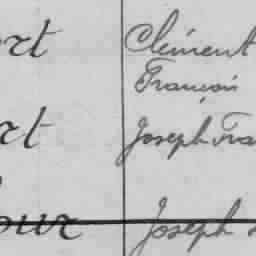 ort Clément
François
rt Joseph Fra
our Joseph